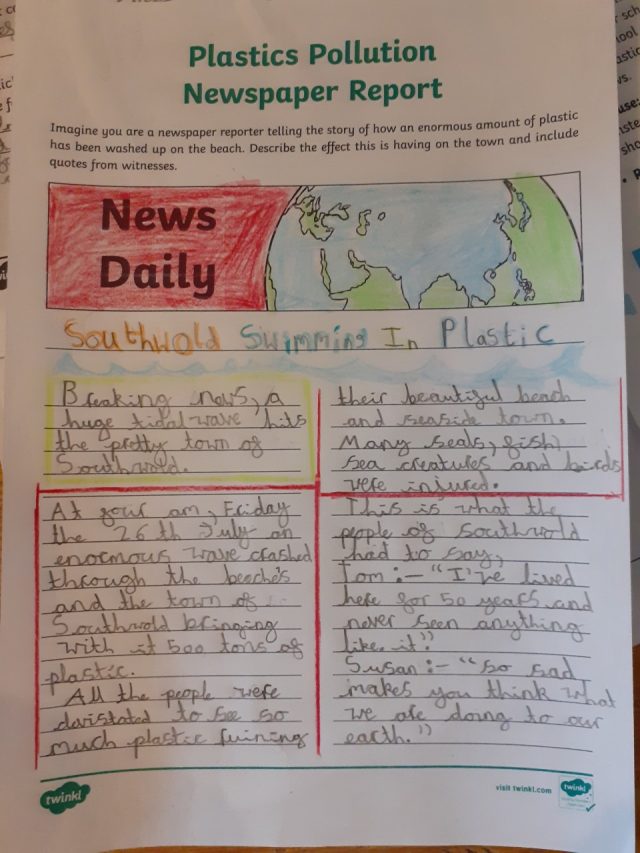 Plastics Pollution
Newspaper Report
Imagine you are a newspaper reporter telling the story of how an enormous amount of plastic
has been washed up on the beach. Describe the effect this is having on the town and include
quotes from witnesses.
News
Daily
Southwold Swimming In Plastic
Breaking news, a
huge tidal wave hits
the pretty town of
Southwold.
At four am, Friday
the 26th July an
enormous wave crashed
through the beaches
and the town of
Southwold bringing
with it 500 tons of
plastic.
All the people were
davistated to see so
much plastic ruining
their beautiful beach
and seaside town.
Many seals, fish
sea creatures and birds
were injured.
This is what the
people of southwold
had to say,
Tom :- "I've lived
here for 50 years and
never seen anything
like it."
Susan :- "so sad
makes you think what
we are doing to our
earth."
twinkl
visit twinkl.com
twinkl